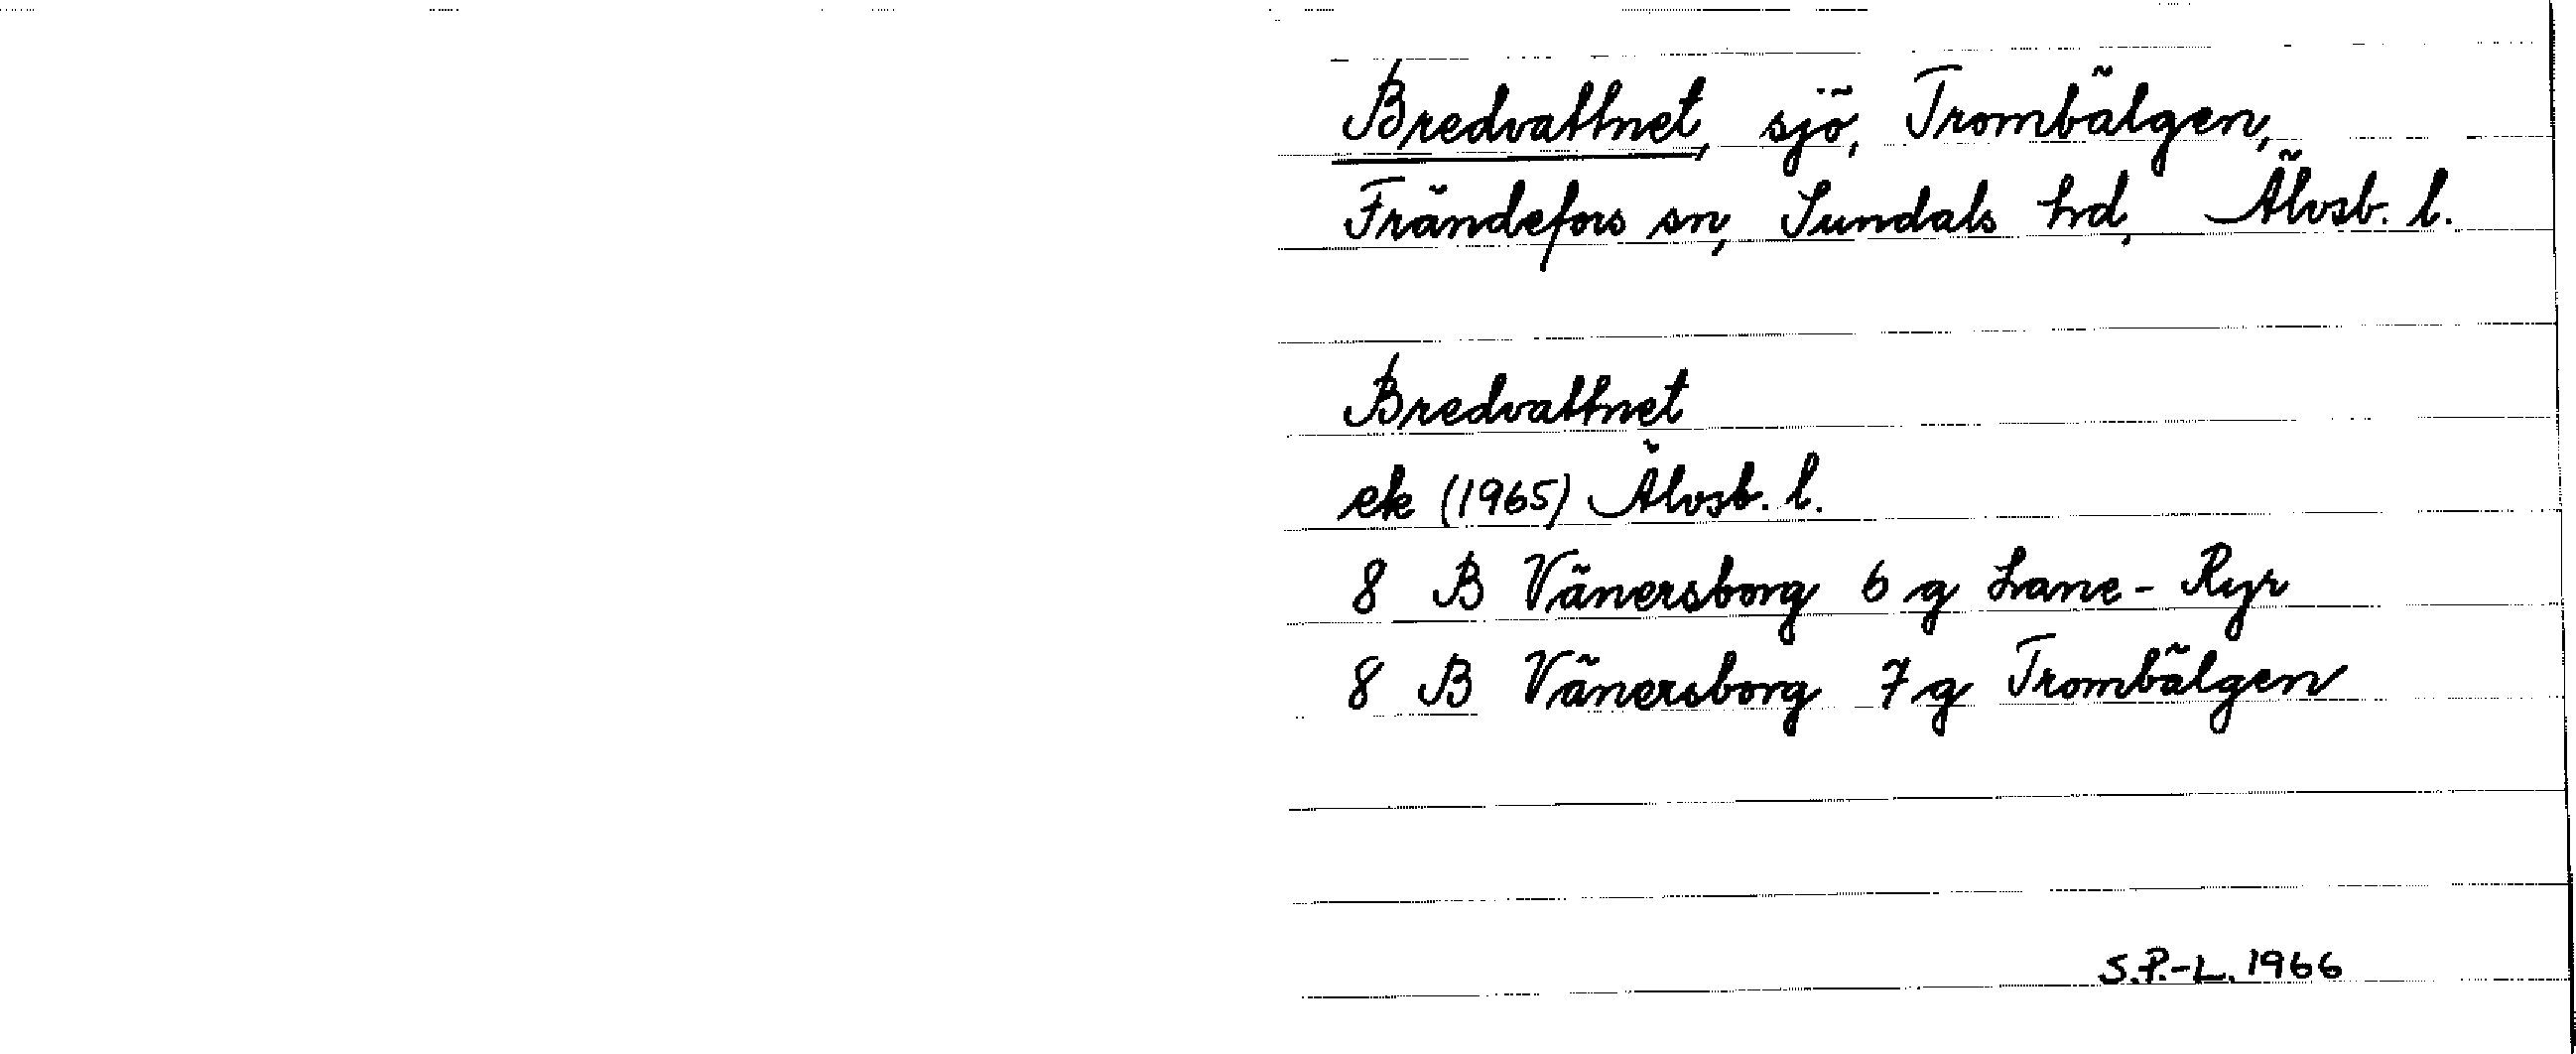 Bredvattnet, sjö, Trombälgen,
Frändefors sn, Sundals hd, Älvsb. l.
Bredvattnet
ek (1965) Älvsb. l.
8 B Vänersborg 6 g Lane-Ryr
8 B Vänersborg 7 g Trombälgen
S.P.-L. 1966